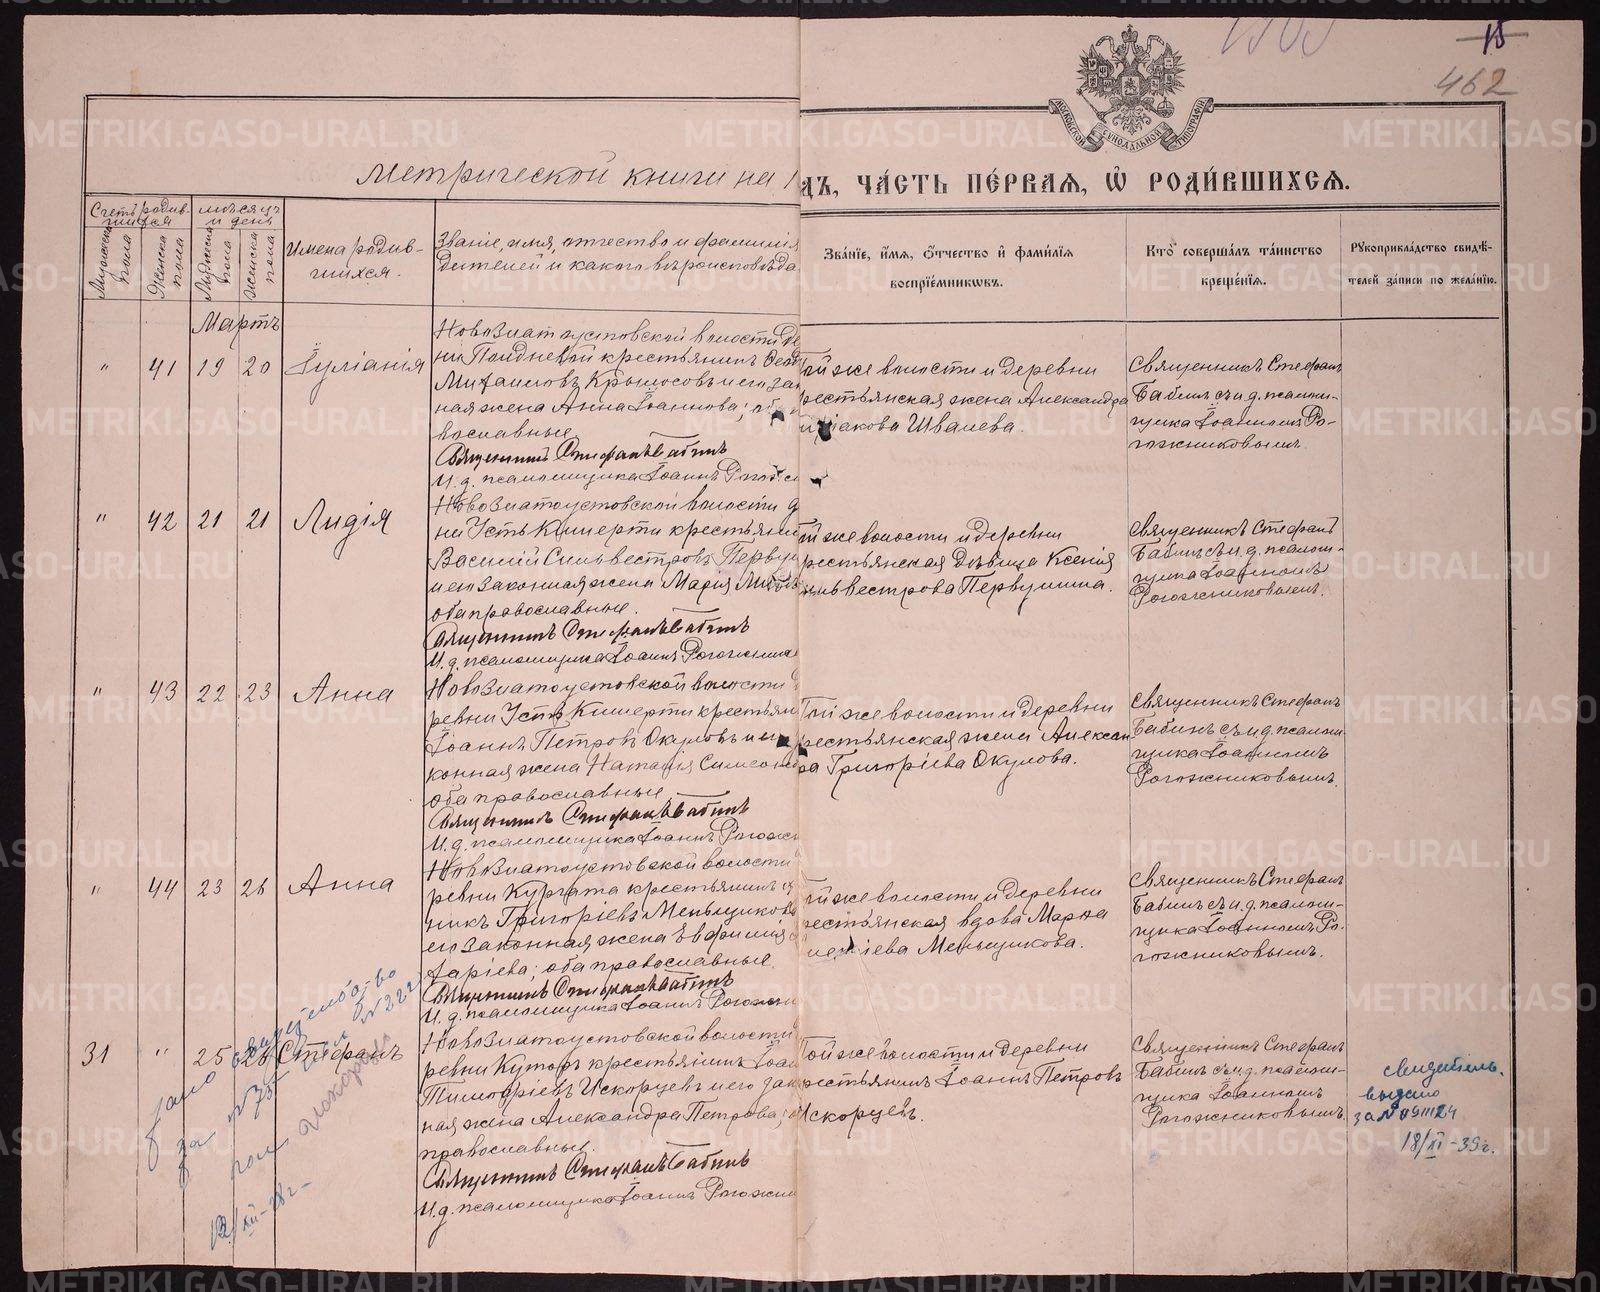 15
462
МОСКОВСКОЙ СѴНОДАЛЬНОЙ ТИПОГРАФІИ
Метрической книги на 1
дъ, ча́сть пе́рваѧ, ѡ҆ роди́вшихсѧ.
Счетъ родив-
шихся
Мужеска пола
Женска пола
Мѣсяцъ
и день
Мужеска пола
Женска пола
Имена родив-
шихся.
Званіе, имя, отчество и фамилія
дителей и какого вѣроисповѣда
Зва́нїе, и҆́мѧ, ѻ҆́тчество и҆ фами́лїѧ
воспрїе́мникѡвъ.
Кто̀ соверша́лъ та́инство
креще́нїѧ.
Рꙋкоприкла́дство свидѣ́-
телей за́писи по жела́нїю.
Мартъ
" 41 19 20 Іуліанія
Новозлатоустовской волости де
ни Полдневой крестьянинъ Ѳеод
Михаиловъ Крылосовъ и его зак
ная жена Анна Іоаннова; оба
вославные
Священникъ Стефанъ Бабинъ
И. д. псаломщика Іоаннъ Рогож
той же волости и деревни
рестьянская жена Александра
Швалева.
Священникъ Стефанъ
Бабинъ съ и. д. псалом-
щика Іоанномъ Ро-
гожниковымъ
" 42 21 21 Лидія
Новозлатоустовской волости д
ни Усть Кишерти крестьянин
Василій Сильвестровъ Первуш
и его законная жена Марія
оба православные.
Священникъ Стефанъ Бабинъ
И. д. псаломщика Іоаннъ Рогожник
ой же волости и деревни
рестьянская дѣвица Ксенія
ильвестрова Первушина.
Священникъ Стефанъ
Бабинъ съ и. д. псалом-
щика Іоанномъ
Рогожниковымъ.
" 43 22 23 Анна
Новозлатоустовской волости
ревни Усть Кишерти крестьян
Іоаннъ Петровъ Окуловъ и его
конная жена Наталія Симеонов
оба православные
Священникъ Стефанъ Бабинъ
И. д. псаломщика Іоаннъ Рогожн
Той же волости и деревни
рестьянская жена Алексан
ра Григоріева Окулова.
Священникъ Стефанъ
Бабинъ съ и. д. псалом-
щика Іоанномъ
Рогожниковымъ.
" 44 23 26 Анна
Новозлатоустовской волости
ревни Кургата крестьянинъ
никъ Григоріевъ Меньщиковъ
его законная жена Евфимія
даріева; оба православные.
Священникъ Стефанъ Бабинъ
И. д. псаломщика Іоаннъ Рогожн
той же волости и деревни
рестьянская вдова Марѳа
Меньщикова.
Священникъ Стефанъ
Бабинъ съ и. д. псалом-
щика Іоанномъ Ро-
гожниковымъ.
31 " 25 26 Стефанъ
Новозлатоустовской волости
ревни Куторъ крестьянинъ Іоан
Тимофѣевъ Искорцевъ и его зак
ная жена Александра Петрова;
православные.
Священникъ Стефанъ Бабинъ
И. д. псаломщика Іоаннъ Рогожни
Той же волости и деревни
рестьянинъ Іоаннъ Петровъ
Искорцевъ.
Священникъ Стефанъ
Бабинъ съ и. д. псалом-
щика Іоанномъ
Рогожниковымъ.
свидетель.
выдано
18/XI-39г.
12/XII-28г-
METRIKI.GASO-URAL.RU